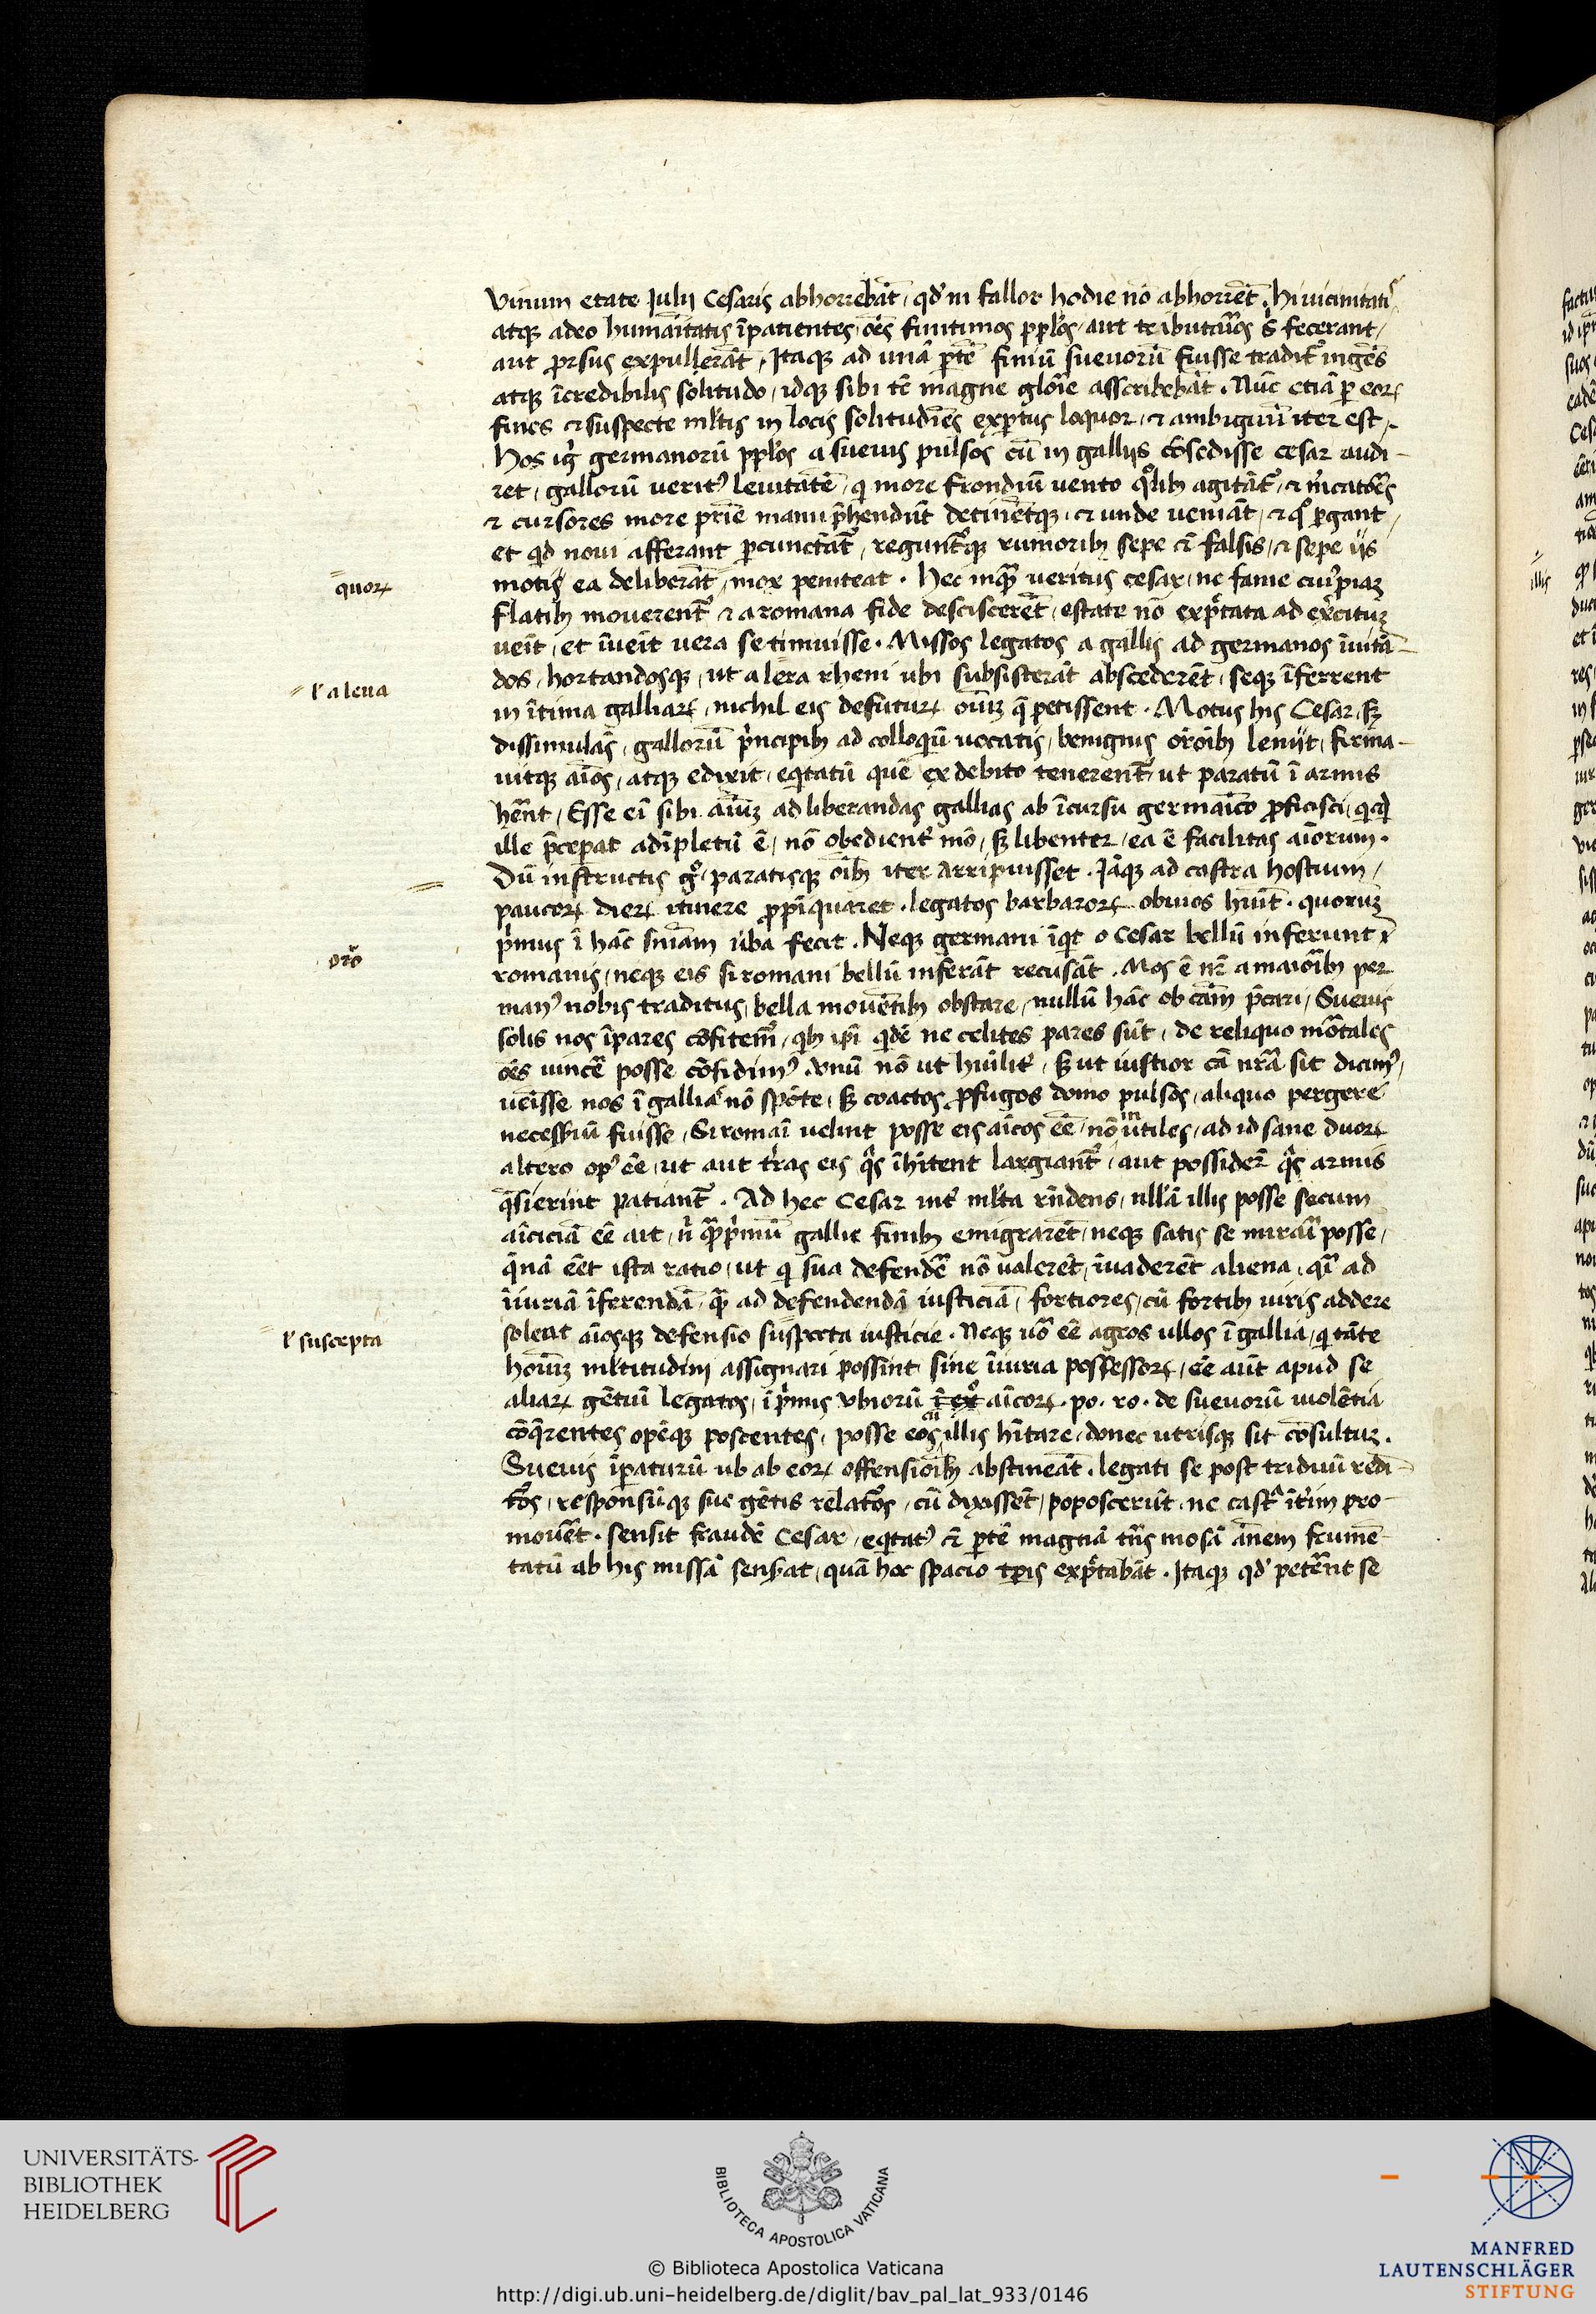 vinum etate Julij Cesaris abhorrebāt / qd' ni fallor hodie nō abhorrēt . Hi uicinitatꝭ
atqꝫ adeo humāitatis īpatientes / oēs finitimos ppl'os / aut tributarios s' fecerant /
aut prorsus expullerāt / Itaqꝫ ad unā ꝑtē finiū sueuorū fuisse tradit᷑ ingēs
atqꝫ īcredibilis solitudo / idqꝫ sibi tē magne glorīe asscribebāt . Nūc etiā ꝑ eoꝝ
fines ⁊ suspecte ml'tis in locis solitudīes exꝑtus loquor / ⁊ ambiguū iter est .
Hos igr̄ germanorū ppl'os a sueuis pulsos cū in gallijs cōsedisse cesar audi-
ret / gallorū uerit' leuitatē / qi more frondiū uento qͦlibꝫ agitāt᷑ / ⁊ m'catōrēs
⁊ cursores more pr̄ie manu p̄hendūt detinētqꝫ / ⁊ unde ueniāt / ⁊ qͦ ꝑgant /
et qd noui afferant ꝑcunctāt᷑ / regunt᷑qꝫ rumoribꝫ sepe ⁊ falsis / ⁊ sepe ijs
quoꝝ
motis ea deliberāt / mox peniteat . Hec inqᷓ ueritus cesar / ne fame
flatibꝫ mouerent᷑ ⁊ a romana fide desciscerēt / estate nō exp̄tata ad ex̄citūꝫ
uēit / et īuēit uera se timuisse . Missos legatos a gallis ad germanos īuitā-
l' a leua
dos / hortandosqꝫ / ut a lera rheni ubi subsisterāt abscederēt / seqꝫ īferrent
in ītima galliaꝝ / nichil eis defutuꝝ oīuꝫ q̄ petissent . Motus his Cesar / sꝫ
dissimulās / gallorū p'ncipibꝫ ad colloqūū uocatis / benignis orōibꝫ lenijt / firma-
uitqꝫ aīos / atqꝫ edixit / eqitatū quē ex debito tenerent᷑ / ut paratū ī armis
hr̄ent / Esse eī sibi aīuꝫ ad liberandas gallias ab īcursu germāico ꝓficisci / qcqd
ille p̄ceꝑat adīpletū ē / nō obedient' mō / sꝫ libenter / ea ē facilitas aīorum .
Dū instructis gͦ / paratisqꝫ oībꝫ iter arripuisset . Jāqꝫ ad castra hostium /
paucoꝝ dieꝝ itinere ꝓpīquaret . legatos barbaroꝝ obuios hūit . quoruꝫ
orō
p'mus ī hāc sn̄iam ūba fecit . Neqꝫ germani īqt o Cesar bellū inferunt r̄
romanis / neqꝫ eis si romani bellū inferāt recusāt . Mos ē nr̄ a maiorībꝫ per
man' nobis traditus / bella mouētibꝫ obstare / nullū hāc ob cām p̄cari / Sueuis
solis nos īpares cōfitem᷑ / qbꝫ ip̄i qdē ne celites pares sūt / de reliquo mōrtales
oēs uincē posse cōfidim' . Vnū nō ut hūilit' / sꝫ ut iustior cā nr̄a sit dicim' /
uēisse nos ī galliā nō spōte / sꝫ coactos ꝓfugos domo pulsos / aliquo pergere
necessiū fuisse / Si romāi uelint posse eis aīcos eē / nō in utiles / ad id sane duoꝝ
altero op' eē / ut aut tr̄as eis qᵃs īhītent largiant᷑ / aut possidēr qᵃs armis
q̄sierint patiant᷑ . Ad hec Cesar int' ml'ta rn̄dens / null'ā illis posse secum
aīciciā eē ait / n' qᷓp'mū gallie finibꝫ emigrarēt / neqꝫ satis se mirari posse /
q̄nā eēt ista ratio / ut qi sua defendē nō ualerēt / īuaderēt aliena / qr ad
īiuriā īferendā qᷓ ad defendendā iusticiā / fortiores / cū fortibꝫ iuris addere
l' suscepta
soleat aīosqꝫ defensio suspecta iusticie . Neqꝫ uō eē agros ullos ī gallia / qi tāte
hoīuꝫ ml'titudini assignari possint sine īiuria possessoꝝ / eē aūt apud se
aliaꝝ gētiū legatos / īp'mis Vbiorū aīcoꝝ . po . ro . de sueuorū uiolētia
cōq̄rentes opēqꝫ poscentes / posse eos cū illis hītare / donec utrisqꝫ sit cōsultuꝫ .
Sueuis īꝑaturū ub ab eoꝝ offensiōibꝫ abstineāt . legati se post triduū redi-
tōs / responsūqꝫ sue gētis relatōs / cū dixissēt / poposcerūt ne castᵃ īt'im pro-
mouēt . sensit fraudē Cesar / eqitat' ⁊ ꝑtē magnā tn̄s mosā amnem frumē-
tatū ab his missā senserat / quā hoc spacio tꝑis exp̄tabāt . Itaqꝫ qd' petēnt se
UNIVERSITÄTS-
BIBLIOTHEK
HEIDELBERG
BIBLIOTECA APOSTOLICA VATICANA
© Biblioteca Apostolica Vaticana
http://digi.ub.uni-heidelberg.de/diglit/bav_pal_lat_933/0146
MANFRED
LAUTENSCHLÄGER
STIFTUNG